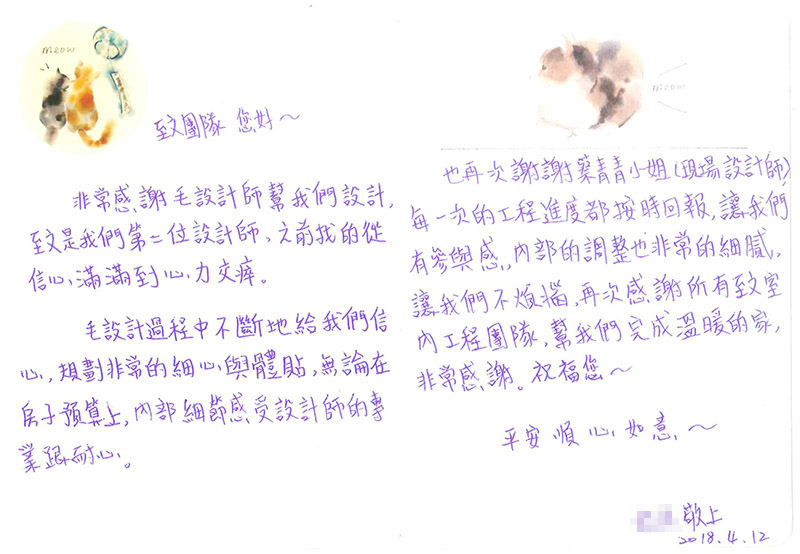 meow
至文團隊 您好～
非常感謝毛設計師幫我們設計,
至文是我們第二位設計師、之前找的從
信心滿滿到心力交瘁。
毛設計過程中不斷地給我們信
心,規劃非常的細心與體貼,無論在
房子預算上,內部細節感受設計師的專
業跟耐心。
meow
也再次謝謝葉青青小姐(現場設計師)
每一次的工程進度都按時回報,讓我們
有參與感,內部的調整也非常的細膩,
讓我們不煩惱,再次感謝所有至文室
內工程團隊,幫我們完成溫暖的家,
非常感謝。祝福您～
平安順心如意～
敬上
2018.4.12